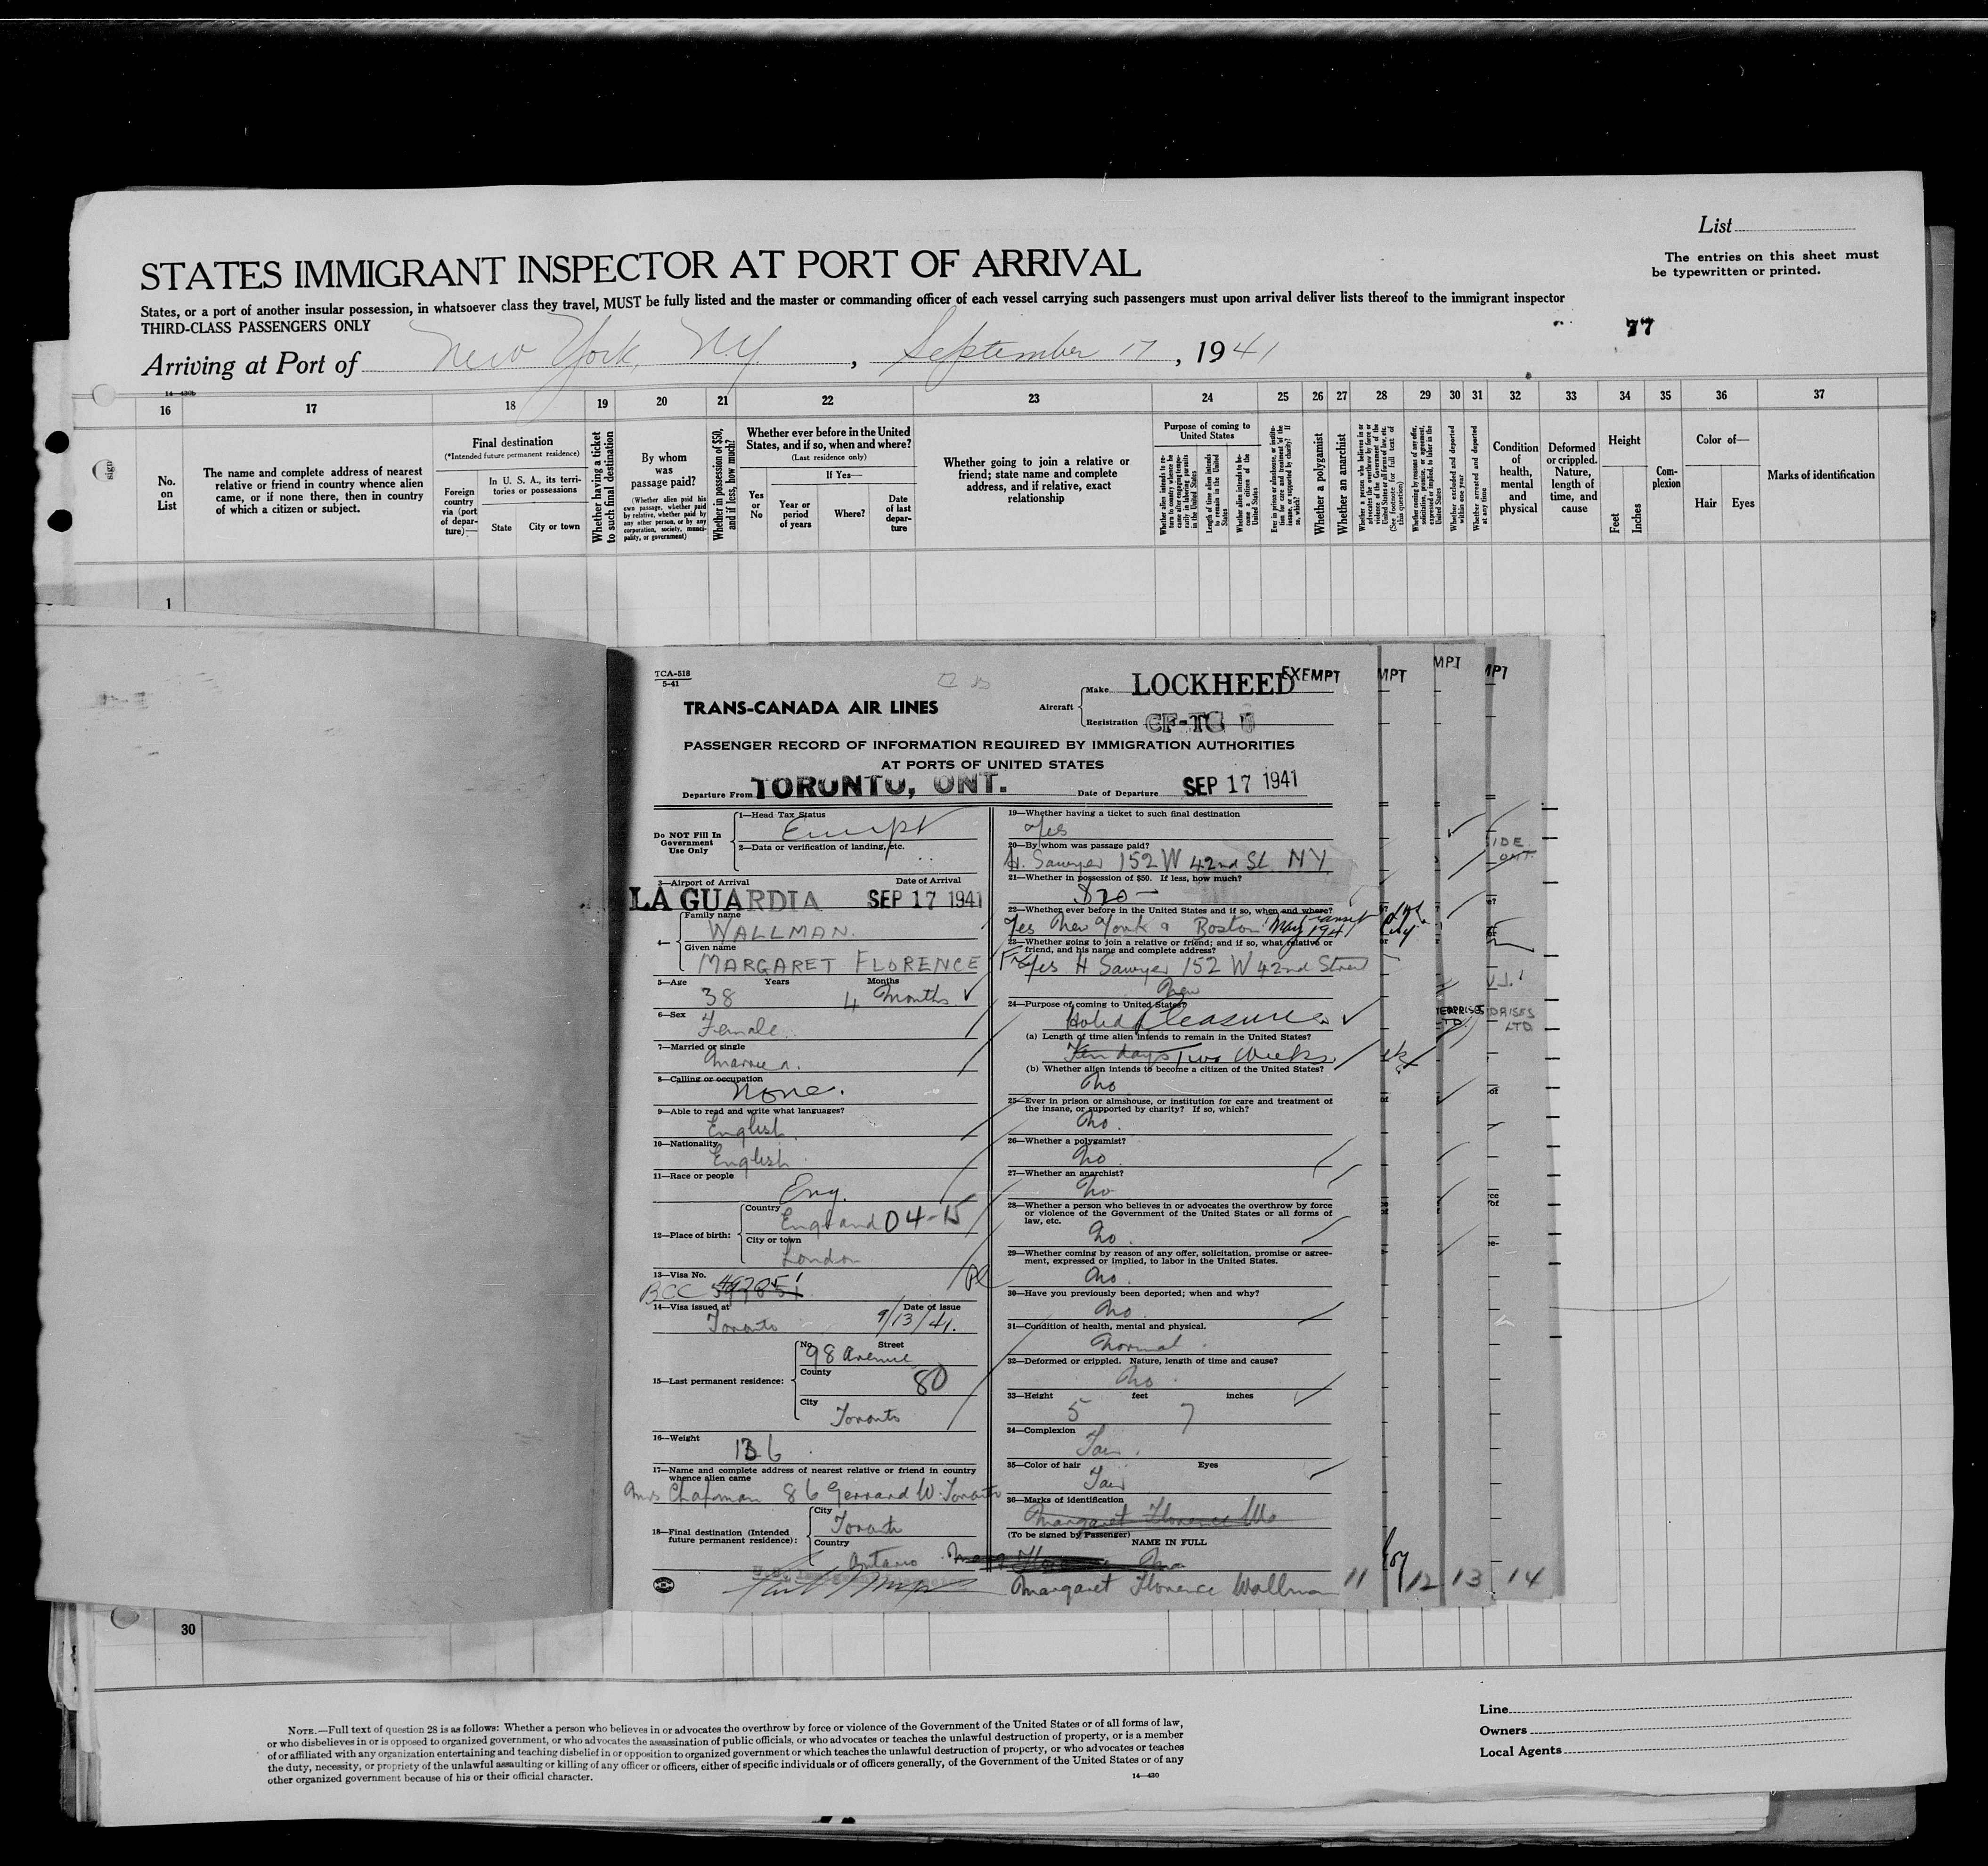 List
The entries on this sheet must
be typewritten or printed.
STATES IMMIGRANT INSPECTOR AT PORT OF ARRIVAL
States, or a port of another insular possession, in whatsoever class they travel, MUST be fully listed and the master or commanding officer of each vessel carrying such passengers must upon arrival deliver lists thereof to the immigrant inspector
THIRD-CLASS PASSENGERS ONLY
77
Arriving at Port of New York, N.Y. , September 17 , 1941
14—430b
16 17 18 19 20 21 22 23 24 25 26 27 28 29 30 31 32 33 34 35 36 37
No.
on
List
The name and complete address of nearest
relative or friend in country whence alien
came, or if none there, then in country
of which a citizen or subject.
Final destination
(*Intended future permanent residence)
Foreign
country
via (port
of depar-
ture)—
In U. S. A., its terri-
tories or possessions
State
City or town
Whether having a ticket
to such final destination
By whom
was
passage paid?
(Whether alien paid his
own passage, whether paid
by relative, whether paid by
any other person, or by any
corporation, society, munici-
pality, or government)
Whether in possession of $50,
and if less, how much?
Whether ever before in the United
States, and if so, when and where?
(Last residence only)
If Yes—
Yes
or
No
Year or
period
of years
Where?
Date
of last
depar-
ture
Whether going to join a relative or
friend; state name and complete
address, and if relative, exact
relationship
Purpose of coming to
United States
Whether alien intends to re-
turn to country whence he
came after engaging tempo-
rarily in laboring pursuits
in the United States
Length of time alien intends
to remain in the United
States
Whether alien intends to be-
come a citizen of the
United States
Ever in prison or almshouse, or institu-
tion for care and treatment of the
insane, or supported by charity? If
so, which?
Whether a polygamist
Whether an anarchist
Whether a person who believes in or
advocates the overthrow by force or
violence of the Government of the
United States or all forms of law, etc.
(See footnote for full text of
this question)
Whether coming by reasons of any offer,
solicitation, promise, or agreement,
expressed or implied, to labor in the
United States
Whether excluded and deported
within one year
Whether arrested and deported
at any time
Condition
of
health,
mental
and
physical
Deformed
or crippled.
Nature,
length of
time, and
cause
Height
Feet
Inches
Com-
plexion
Color of—
Hair
Eyes
Marks of identification
1
sign
TCA-518
5-41
TRANS-CANADA AIR LINES
Aircraft
Make LOCKHEED
EXEMPT
MPT
MPT
MPT
Registration CF-TC
PASSENGER RECORD OF INFORMATION REQUIRED BY IMMIGRATION AUTHORITIES
AT PORTS OF UNITED STATES
Departure From TORONTO, ONT. Date of Departure SEP 17 1941
Do NOT Fill In
Government
Use Only
1—Head Tax Status
Exempt
2—Data or verification of landing, etc.
3—Airport of Arrival Date of Arrival
LA GUARDIA SEP 17 1941
4—
Family name
WALLMAN.
Given name
MARGARET FLORENCE
5—Age Years Months
38 4 Months
6—Sex
Female
7—Married or single
Married.
8—Calling or occupation
None.
9—Able to read and write what languages?
English
10—Nationality
English
11—Race or people
Eng.
12—Place of birth:
Country
England 04-15
City or town
London
13—Visa No.
BCC
14—Visa issued at Date of issue
Toronto 9/13/41.
15—Last permanent residence:
No. Street
98 Avenue
County
80
City
Toronto
16—Weight
136
17—Name and complete address of nearest relative or friend in country
whence alien came
Mrs Chapman 86 Gerrard W. Toronto
18—Final destination (Intended
future permanent residence):
City
Toronto
Country
Ontario
U.S. Immigrant Inspector
19—Whether having a ticket to such final destination
Yes
20—By whom was passage paid?
H. Sawyer 152 W 42nd St. NY.
21—Whether in possession of $50. If less, how much?
$20—
22—Whether ever before in the United States and if so, when and where?
Yes New York & Boston May 1941 transit
23—Whether going to join a relative or friend; and if so, what relative or
friend, and his name and complete address?
Yes H Sawyer 152 W 42nd Street
New
24—Purpose of coming to United States?
Pleasure
(a) Length of time alien intends to remain in the United States?
Ten days Two Weeks
(b) Whether alien intends to become a citizen of the United States?
No
25—Ever in prison or almshouse, or institution for care and treatment of
the insane, or supported by charity? If so, which?
No.
26—Whether a polygamist?
No
27—Whether an anarchist?
No
28—Whether a person who believes in or advocates the overthrow by force
or violence of the Government of the United States or all forms of
law, etc.
No.
29—Whether coming by reason of any offer, solicitation, promise or agree-
ment, expressed or implied, to labor in the United States.
No.
30—Have you previously been deported; when and why?
No.
31—Condition of health, mental and physical.
Normal.
32—Deformed or crippled. Nature, length of time and cause?
No.
33—Height feet inches
5 7
34—Complexion
Fair.
35—Color of hair Eyes
Fair
36—Marks of identification
Margaret Florence
(To be signed by Passenger)
NAME IN FULL
Margaret Florence Wallman
11 12 13 14
30
NOTE.—Full text of question 28 is as follows: Whether a person who believes in or advocates the overthrow by force or violence of the Government of the United States or of all forms of law,
or who disbelieves in or is opposed to organized government, or who advocates the assassination of public officials, or who advocates or teaches the unlawful destruction of property, or is a member
of or affiliated with any organization entertaining and teaching disbelief in or opposition to organized government or which teaches the unlawful destruction of property, or who advocates or teaches
the duty, necessity, or propriety of the unlawful assaulting or killing of any officer or officers, either of specific individuals or of officers generally, of the Government of the United States or of any
other organized government because of his or their official character.
14—430
Line
Owners
Local Agents